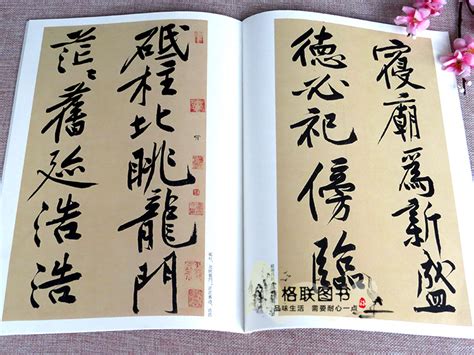 寢廟爲新盛
德必祀傍臨
砥柱北眺龍門
茫〻舊迹浩浩
格联图书
品味生活 需要耐心一点